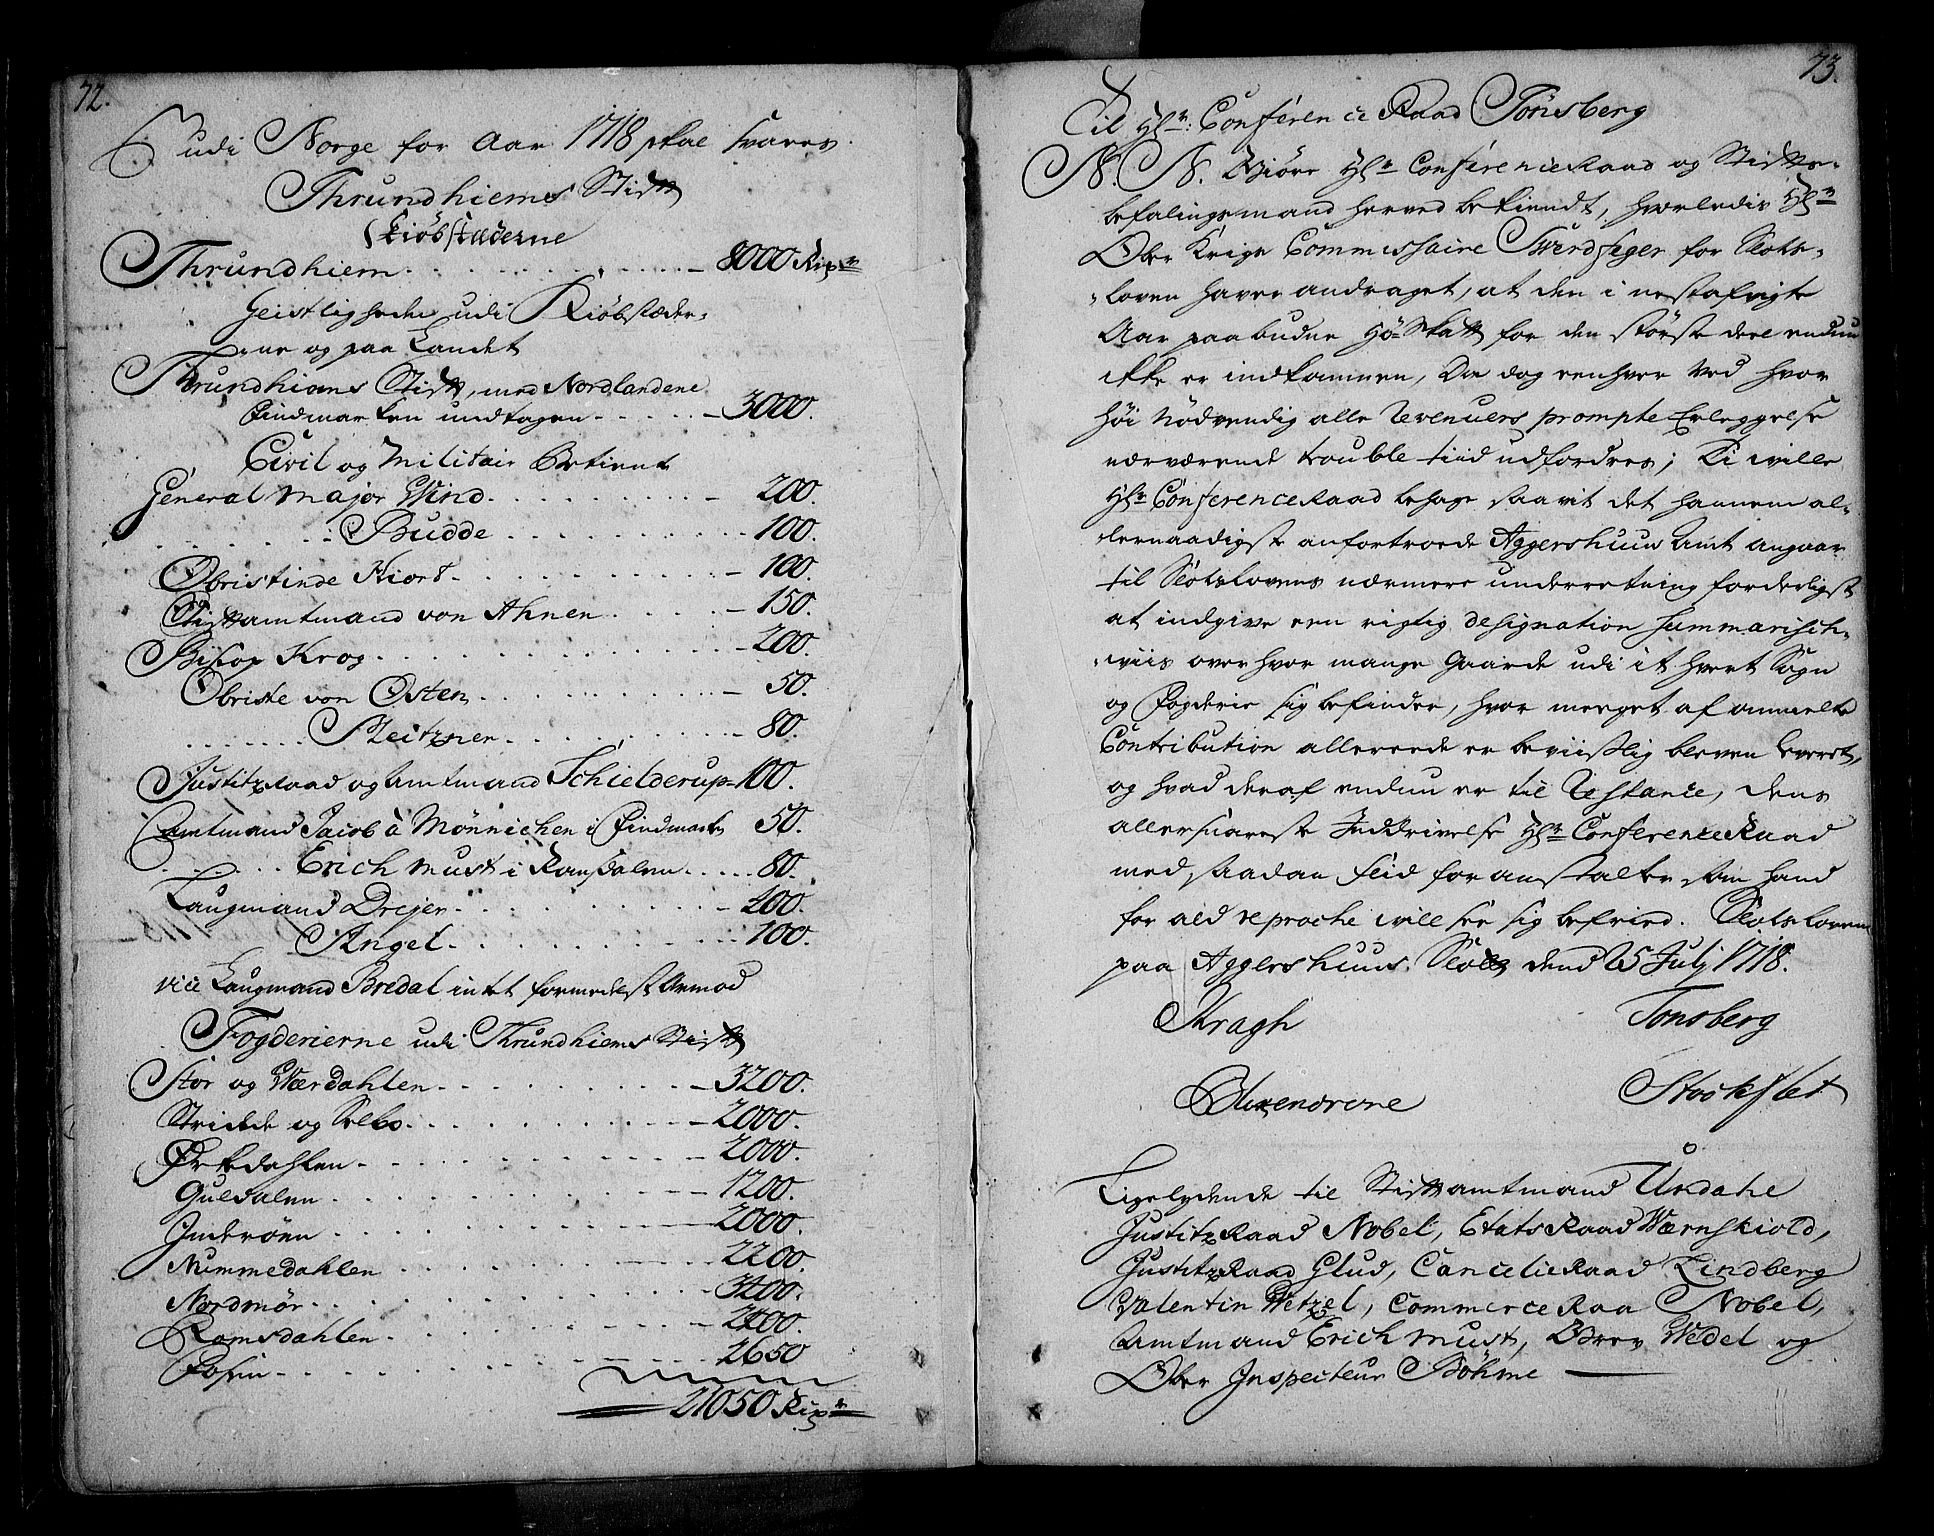 72.
udi Norge for Aar 1718 skal svares.
Thrundhiems Stigt
Kiöbstæderne
Thrundhiem - 8000 Rixdr
Geistligheden udi Kiöbstæder-
ne og paa Landet
Thrundhiems Stigt, med Nordlandene
Findmarken undtagen - 3000.
Civil og Militair Betiente
General Major Wind - 200.
Budde - 100.
Obristinde Hiort - 100.
Stigtamtmand von Ahnen - 150.
Biskop Krog - 200.
Obriste von Osten - 50.
Pleitzner - 80.
Justitzraad og Amtmand Schielderup - 100.
Amtmand Jacob à Mönnichen i Findmarken 50.
Erich Must i Romsdalen - 80.
Laugmand Drejer - 200.
Angel - 100.
Vice Laugmand Bredal intet formedelst Armod
Fogderierne udi Thrundhiems Stigt
Stör og Werdahlen - 3200.
Strinde og Selbo - 2000.
Örkedahlen - 2000.
Guldalen - 1200.
Inderöen - 2000.
Nummedahlen - 2200.
Nordmör - 3400.
Romsdahlen - 2400.
Fosen - 2650
21050 Rixdr
73.
Til Hr. Conference Raad Tönsberg
N. N. Giöre Hr Conference Raad og Stigts-
befalingsmand herved bekiendt, hvorledis Hr
Ober Krigs Commissaire Swerdfeger for Slots-
loven haver andraget, at den i nestafvigte
Aar paabudne Hö-Skatt for den störste deel endnu
ikke er indkommen, Da dog eenhver veed hvor
höi nödvendig alle Revenuers prompte Erleggelse
nærværende trouble tiid udfordres; Di wille
Hr Conference Raad behage saavit det hannem al-
lernaadigst anfortroede Aggershuus Amt angaar
til Slotslovens nærmere underretning forderligst
at indgive een rigtig designation summarisch-
wiis over hvor mange Gaarde udi it hvert Sogn
og Fogderie sig befinder, hvor meeget af ommelte
Contribution allerede er beviislig bleven leveret,
og hvad deraf endnu er til Restance, dens
allersnareste Inddrivelse Hr Conference Raad
med saadan fliid foranstalter som hand
for ald reproche will see sig befried. Slotsloven
paa Aggershuus Slott dend 25 Julj 1718.
Kragh Tonsberg
Blixendrone Stockflet
Ligelydende til Stigtamtmand Undahl
Justitz Raad Nobel, Etats Raad Wærnskiold,
Justitz Raad Glud, Cancelie Raad Lindberg
Valentin Wetzel, Commerce Raad Nobel,
Amtmand Erich Must, Grev Wedel og
Ober Inspecteur Böhme